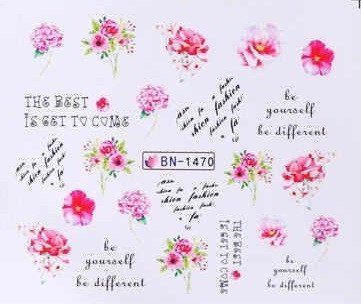 THE BEST
IS GET TO COME
fashion
be
yourself
be different
BN-1470
fashion
fashion
be
yourself
be different
THE BEST
IS GET TO COME
be
yourself
be different